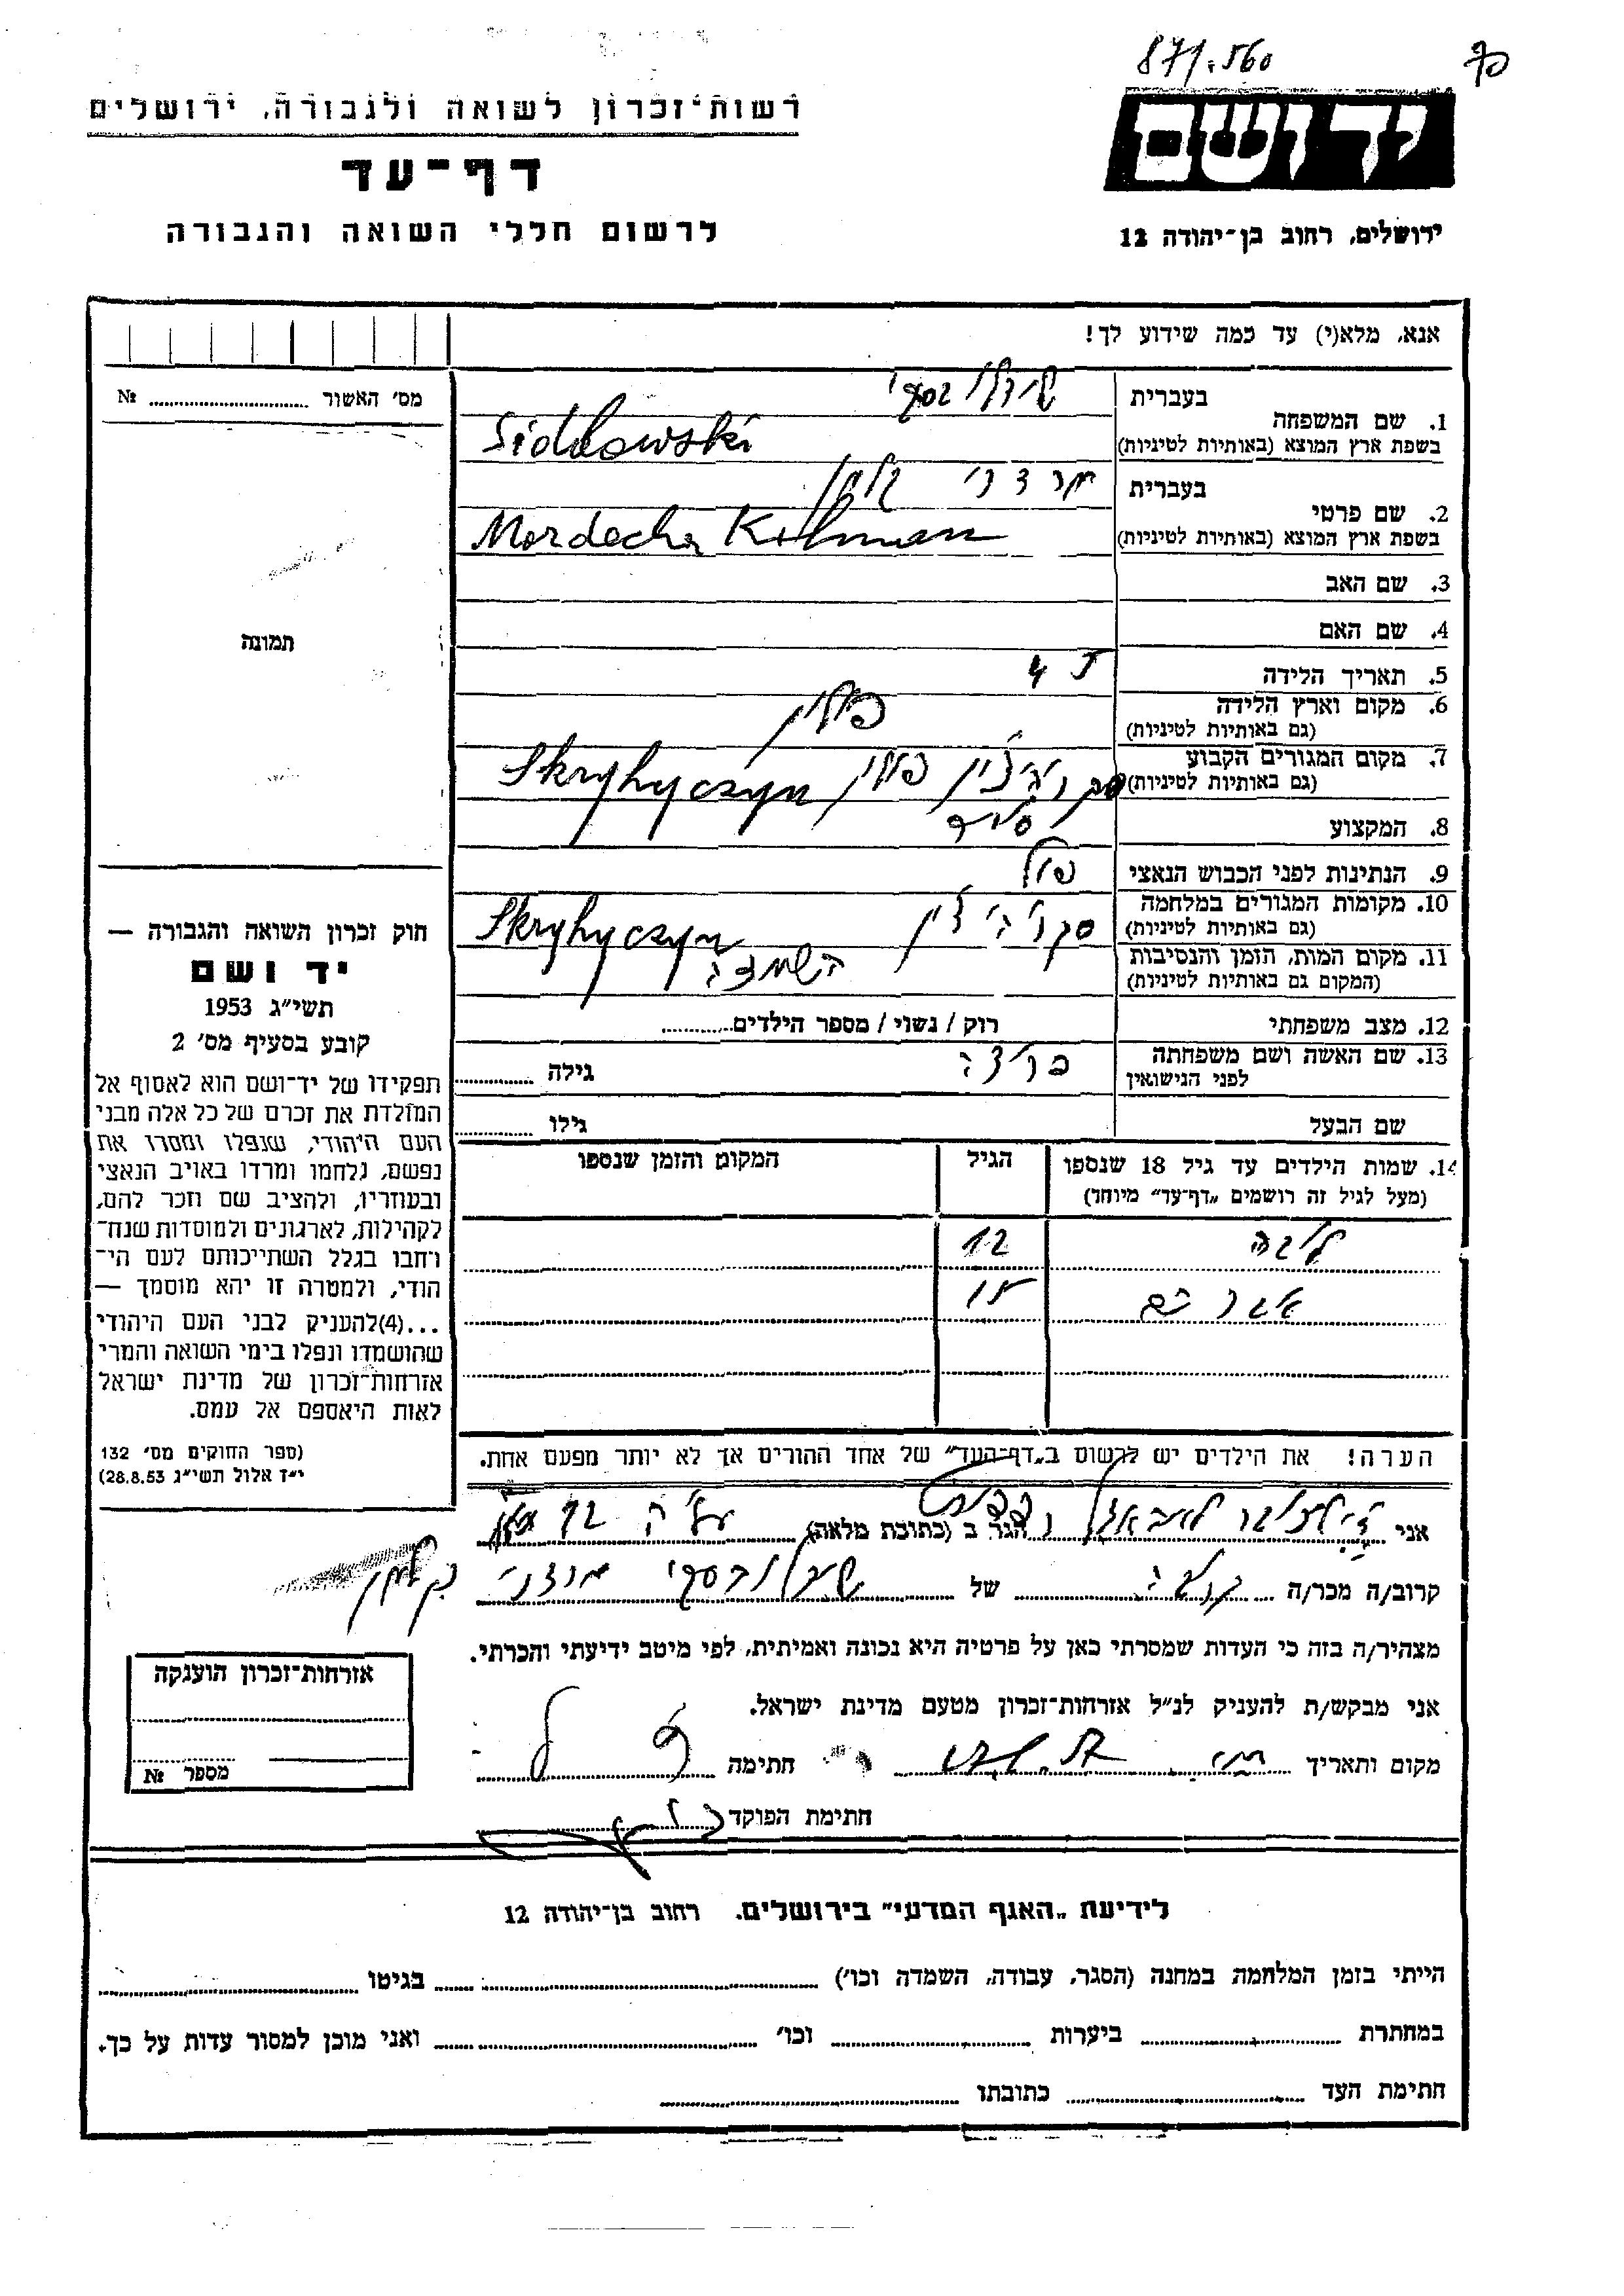 871.560
רשות־זכרון לשואה ולגבורה, ירושלים
יד ושם
דף־עד
לרשום חללי השואה והגבורה
ירושלים, רחוב בן־יהודה 12
אנא, מלא(י) עד כמה שידוע לך!
מס' האשור № ............
1. שם המשפחה
בעברית
בשפת ארץ המוצא (באותיות לטיניות)
Sidlowski
2. שם פרטי
בעברית מרדכי קלמן
בשפת ארץ המוצא (באותיות לטיניות)
Mordecha Kalman
3. שם האב
4. שם האם
תמונה
5. תאריך הלידה
6. מקום וארץ הלידה פולין
(גם באותיות לטיניות)
7. מקום המגורים הקבוע פולין Skryhyczyn
(גם באותיות לטיניות)
8. המקצוע
9. הנתינות לפני הכבוש הנאצי
10. מקומות המגורים במלחמה Skryhyczyn
(גם באותיות לטיניות)
11. מקום המות, הזמן והנסיבות
(המקום גם באותיות לטיניות)
12. מצב משפחתי רוק / נשוי / מספר הילדים............
13. שם האשה ושם משפחתה גילה ............
לפני הנישואין
שם הבעל גילו ............
14. שמות הילדים עד גיל 18 שנספו הגיל המקום והזמן שנספו
(מעל לגיל זה רושמים „דף־עד” מיוחד)
12
אברהם 15
הערה! את הילדים יש לרשום ב„דף־העד” של אחד ההורים אך לא יותר מפעם אחת.
חוק זכרון השואה והגבורה —
יד ושם
תשי״ג 1953
קובע בסעיף מס' 2
תפקידו של יד־ושם הוא לאסוף אל
המולדת את זכרם של כל אלה מבני
העם היהודי, שנפלו ומסרו את
נפשם, נלחמו ומרדו באויב הנאצי
ובעוזריו, ולהציב שם וזכר להם,
לקהילות, לארגונים ולמוסדות שנח־
רחבו בגלל השתייכותם לעם הי־
הודי, ולמטרה זו יהא מוסמך —
...(4)להעניק לבני העם היהודי
שהושמדו ונפלו בימי השואה והמרי
אזרחות־זכרון של מדינת ישראל
לאות היאספם אל עמם.
(ספר החוקים מס' 132
י״ד אלול תשי״ג 28.8.53)
אני הגר ב (כתובת מלאה)
קרוב/ה מכר/ה של
מצהיר/ה בזה כי העדות שמסרתי כאן על פרטיה היא נכונה ואמיתית, לפי מיטב ידיעתי והכרתי.
אני מבקש/ת להעניק לנ״ל אזרחות־זכרון מטעם מדינת ישראל.
מקום ותאריך חתימה
חתימת הפוקד
אזרחות־זכרון הוענקה
מספר №
לידיעת „האגף המדעי” בירושלים. רחוב בן־יהודה 12
הייתי בזמן המלחמה במחנה (הסגר, עבודה, השמדה וכו') ............ בגיטו ............
במחתרת ............ ביערות ............ וכו' ............ ואני מוכן למסור עדות על כך.
חתימת העד ............ כתובתו ............